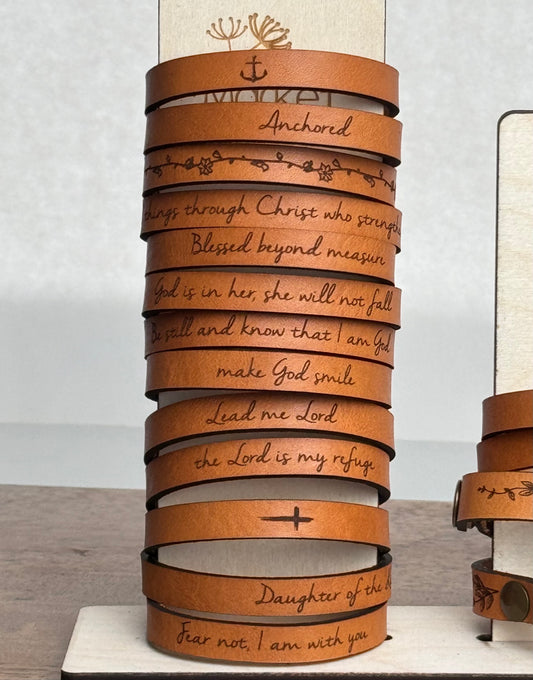 Market
Anchored
things through Christ who strength
Blessed beyond measure
God is in her, she will not fall
Be still and know that I am God
make God smile
Lead me Lord
the Lord is my refuge
Daughter of the
Fear not, I am with you